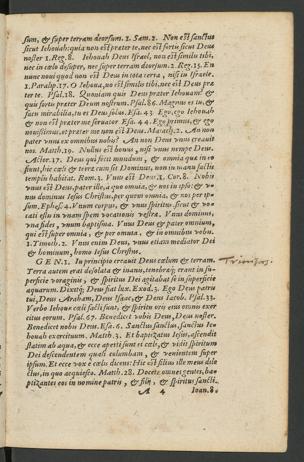 sum, & super terram deorsum. 2. Sam. 2. Non est sanctus
sicut Iehouah: quia non est præter te, nec est fortis sicut Deus
noster 1. Reg. 8. Iehouah Deus Israel, non est similis tibi,
nec in cælo desuper, nec super terram deorsum. 2. Reg. 15. En
nunc noui quod non est Deus in tota terra, nisi in Israele.
1. Paralip. 17. O Iehoua, nō est similis tibi, nec est Deus præ
ter te. Psal. 18. Quoniam quis Deus præter Iehouam? &
quis fortis præter Deum nostrum. Psal. 86. Magnus es tu, &
facis mirabilia, tu es Deus solus. Esa. 43. Ego, ego Iehouah
& non est præter me seruator Esa. 44. Ego primus, & ego
nouissimus, et præter me non est Deus. Malach. 2. An non
pater vnus ex omnibus nobis? An non Deus vnus creauit
nos. Math. 19. Nullus est bonus, nisi vnus nempe Deus.
Actor. 17. Deus qui fecit mundum, & omnia quæ in eo
sunt, hic cæli & terræ cum sit Dominus, non in manu factis
templis habitat. Rom. 3. Vnus est Deus 1. Cor. 8. Nobis
vnus est Deus, pater ille, a quo omnia, & nos in ipso: & v-
nus dominus Iesus Christus, per quem omnia, & nos per ip-
sum, Ephes. 4. Vnum corpus, & vnus spiritus. sicut & vo-
cati estis in vnam spem vocationis vestræ. Vnus dominus,
vna fides, vnum baptisma. Vnus Deus & pater omnium,
qui est super omnia, & per omnia, & in omnibus vobis.
1. Timoth. 2. Vnus enim Deus, vnus etiam mediator Dei
& hominum, homo Iesus Christus.
GEN. 1. In principio creauit Deus cælum & terram.
Terra autem erat desolata & inanis, tenebræq; erant in su-
perficie voraginis, & spiritus Dei agitabat se in superficie
aquarum. Dixitq; Deus fiat lux. Exod. 3. Ego Deus patris
tui, Deus Abraham, Deus Isaac, & Deus Iacob. Psal. 33.
Verbo Iehouæ cæli facti sunt, & spiritu oris eius omnis exer
citus eorum. Psal. 67. Benedicet vobis Deus, Deus noster.
Benedicet nobis Deus. Esa. 6. Sanctus sanctus, sanctus Ie-
houah exercituum. Matth. 3. Et baptizatus Iesus, ascendit
statim ab aqua, & ecce aperti sunt ei cæli, & vidit spiritum
Dei descendentem quasi columbam, & venientem super
ipsum. Et ecce vox è cælis dicens: Hic est filius ille meus dile
ctus, in quo acquiesco. Matth. 28. Docete omnes gentes, ba-
ptizantes eos in nomine patris, & filij, & spiritus sancti.
A 4 Ioan. 8.